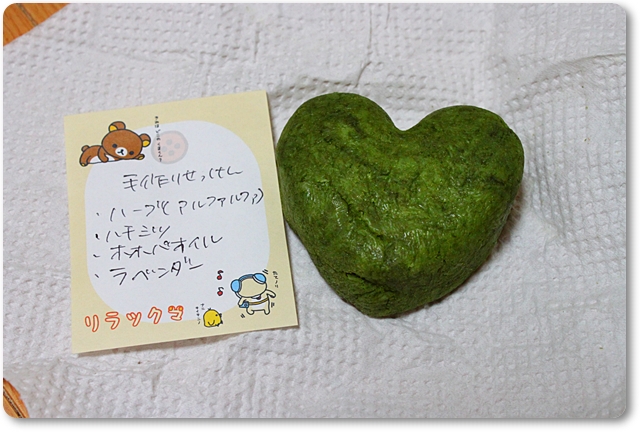 手作りせっけん
・ハーブ(アルファルファ)
・ハチミツ
・ホホバオイル
・ラベンダー
リラックマ